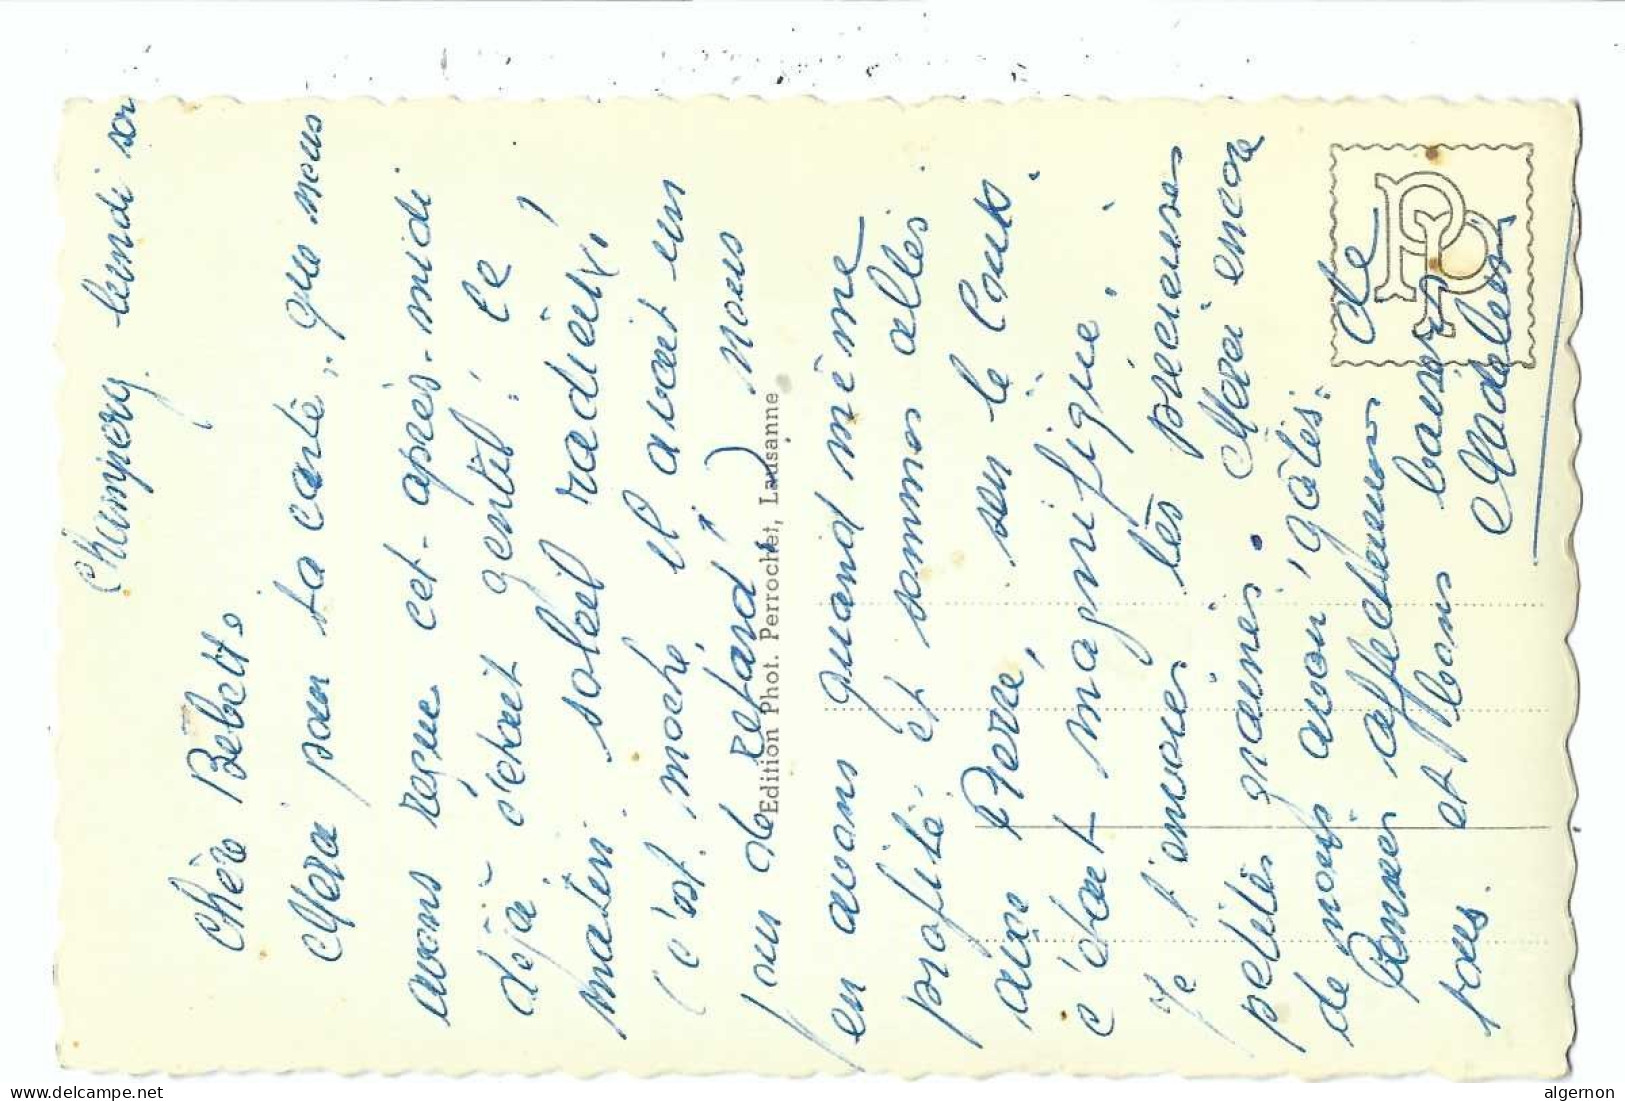 Champéry. lundi soir
Chère Bebette
Merci pour ta carte, que nous
avons reçue cet-après-midi
déjà c'était gentil! Ce
matin soleil radieux!
(c'est moche, il avait un
jour de retard!) Nous
en avons quand même
profité et sommes allés
avec Pierre, sur le Coux.
c'était magnifique!
Je t'envoies les précieuses
petites graines. Merci encore
de nous avoir gâtés.
Pensées affectueuses de
tous. et bons baisers
Madeleine
Edition Phot. Perrochet, Lausanne
PPL
delcampe.net
algernon